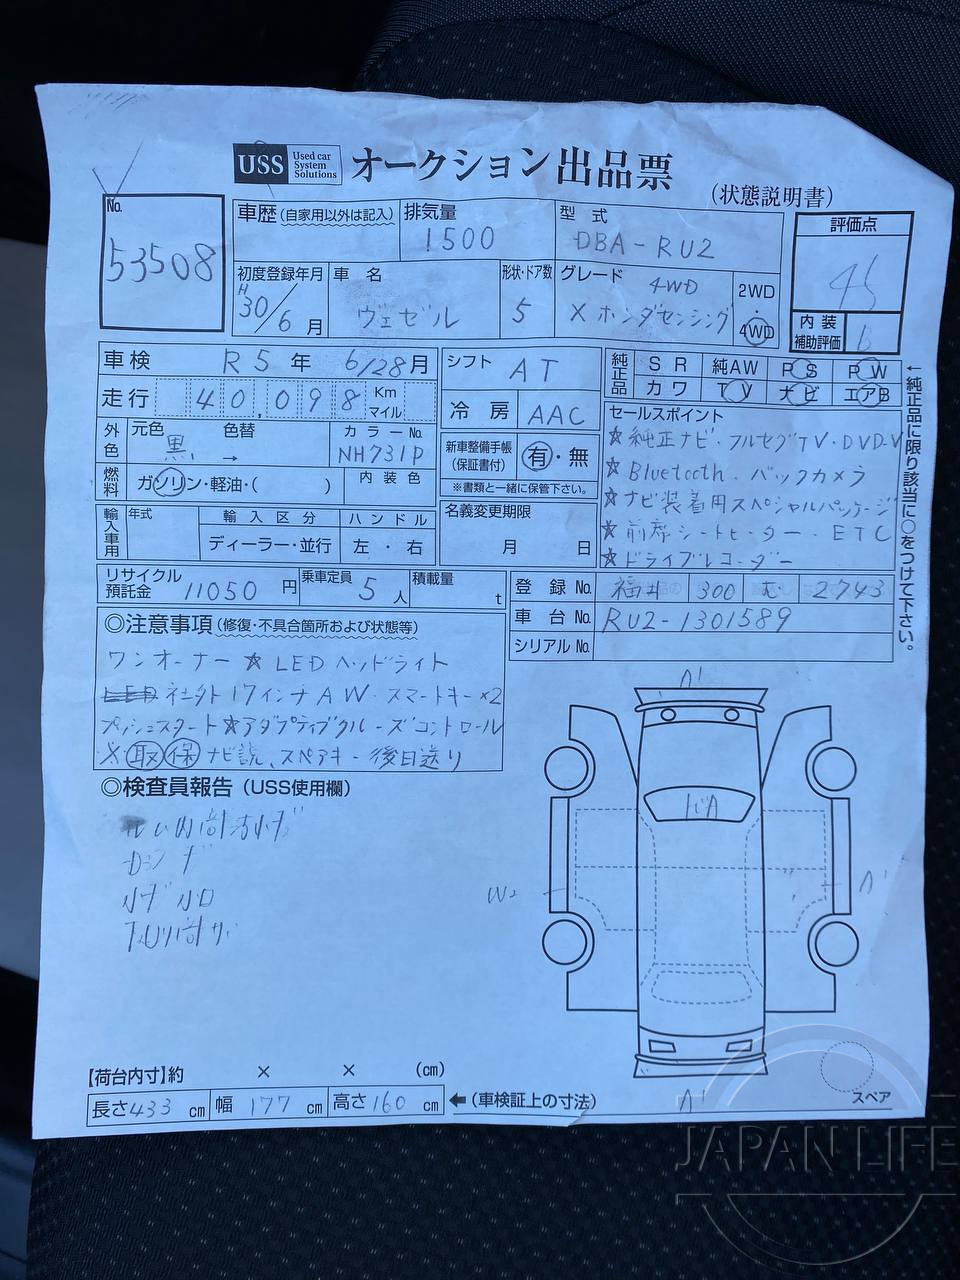 USS Used car System Solutions オークション出品票
(状態説明書)
No. 53508
車歴(自家用以外は記入)
排気量 1500
型式 DBA-RU2
評価点
初度登録年月 H30/6月
車名 ヴェゼル
形状・ドア数 5
グレード 4WD
Xホンダセンシング
2WD・4WD
内装補助評価
車検 R5年 6/28月
シフト AT
純正品 SR 純AW PS PW
カワ TV ナビ エアB
←純正品に限り該当に○をつけて下さい。
走行 40,098 Km マイル
冷房 AAC
セールスポイント
☆純正ナビ・フルセグTV・DVD-V
☆Bluetooth・バックカメラ
☆ナビ装着用スペシャルパッケージ
☆前席シートヒーター・ETC
☆ドライブレコーダー
外色 元色 黒 → 色替
カラーNo. NH731P
新車整備手帳(保証書付) 有・無
※書類と一緒に保管下さい。
燃料 ガソリン・軽油・( )
内装色
輸入車用 年式
輸入区分 ディーラー・並行
ハンドル 左・右
名義変更期限 月 日
リサイクル預託金 11050円
乗車定員 5人
積載量 t
登録No. 福井 300 む 2743
車台No. RU2-1301589
シリアルNo.
◎注意事項(修復・不具合箇所および状態等)
ワンオーナー☆LEDヘッドライト
社外17インチAW・スマートキー×2
プッシュスタート☆アダプティブクルーズコントロール
※取保ナビ説、スペアキー後日送り
◎検査員報告(USS使用欄)
W2
【荷台内寸】約 × × (cm)
長さ433cm 幅177cm 高さ160cm ←(車検証上の寸法)
スペア
JAPAN LIFE